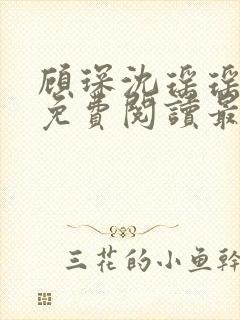 顾琛沈瑶瑶
免費閱讀最
三花的小鱼幹